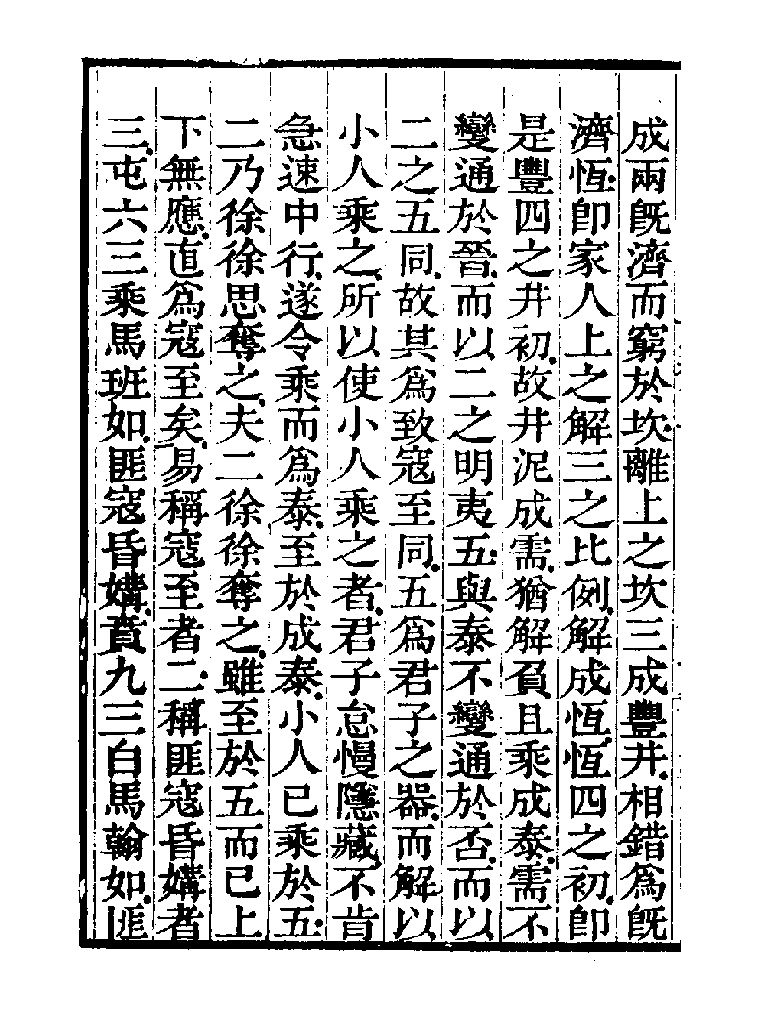 成兩旣濟而窮於坎離上之坎三成豐井相錯爲旣
濟恆卽家人上之解三之比例解成恆恆四之初卽
是豐四之井初故井泥成需猶解負且乘成泰需不
變通於晉而以二之明夷五與泰不變通於否而以
二之五同故其爲致寇至同五爲君子之器而解以
小人乘之所以使小人乘之者君子怠慢隱藏不肯
急速中行遂令乘而爲泰至於成泰小人已乘於五
二乃徐徐思奪之夫二徐徐奪之雖至於五而已上
下無應直爲寇至矣易稱寇至者二稱匪寇昏媾者
三屯六三乘馬班如匪寇昏媾賁九三白馬翰如匪